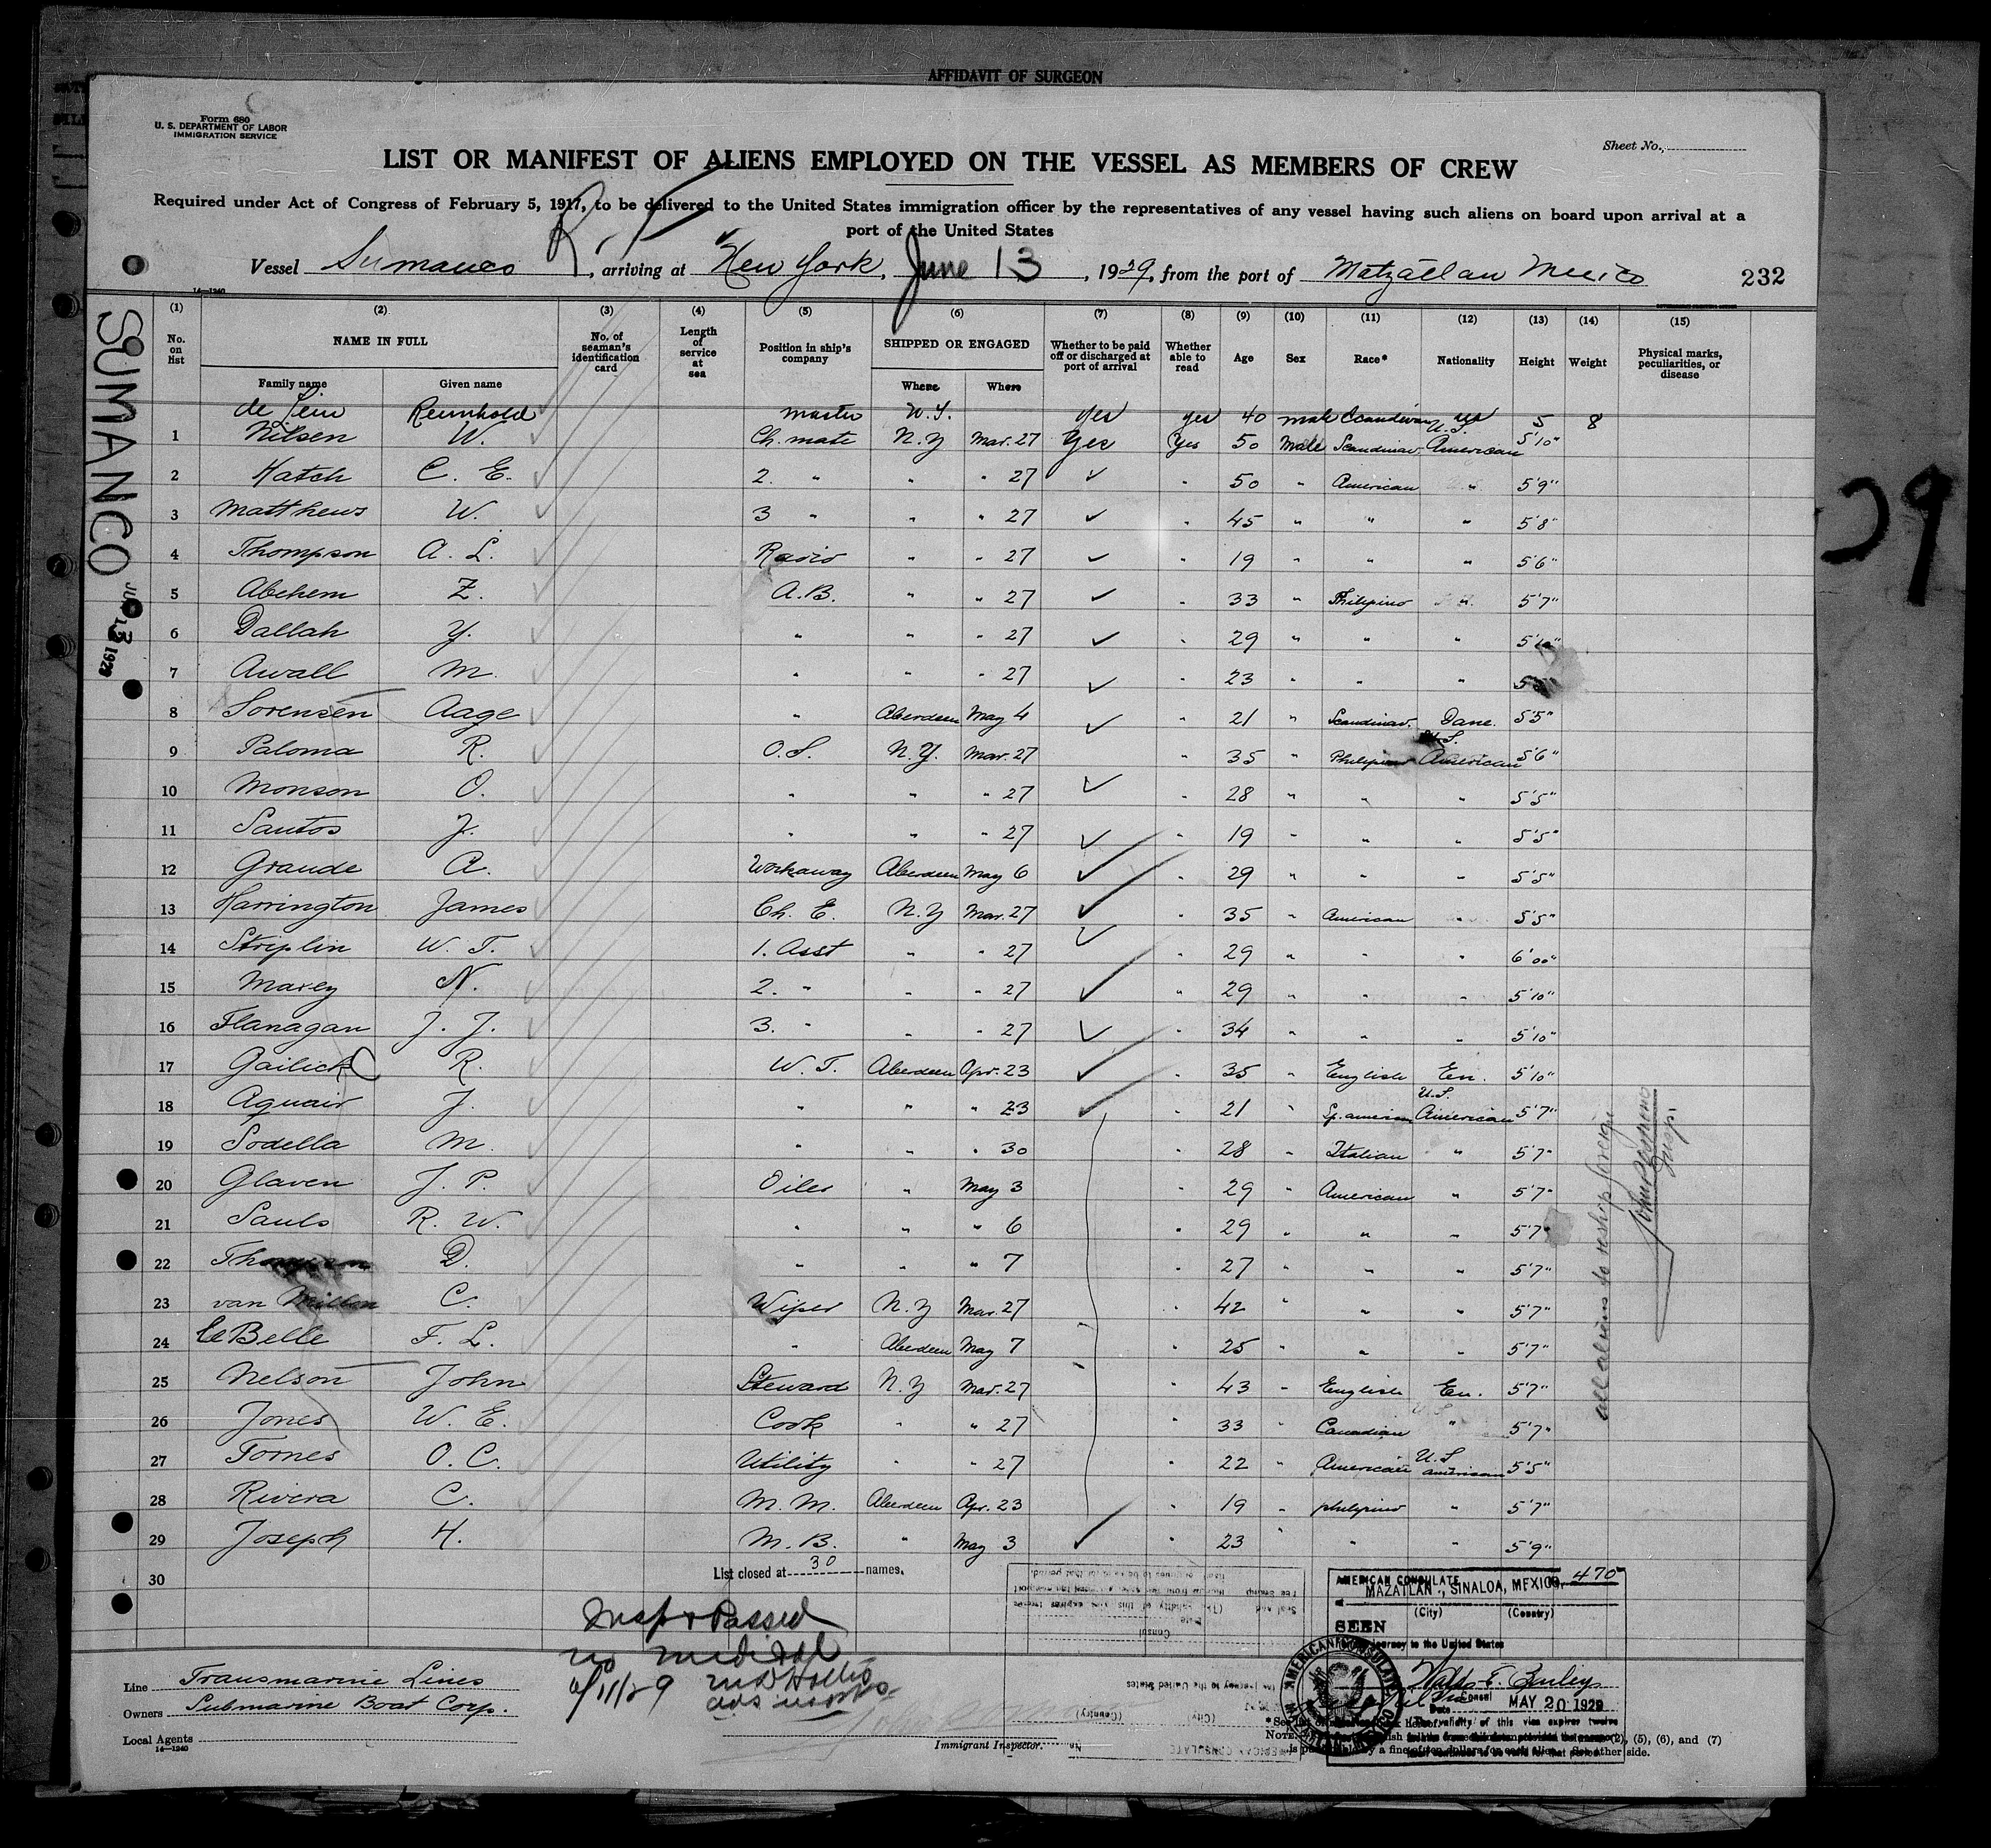 AFFIDAVIT OF SURGEON
Form 680
U. S. DEPARTMENT OF LABOR
IMMIGRATION SERVICE
Sheet No.
LIST OR MANIFEST OF ALIENS EMPLOYED ON THE VESSEL AS MEMBERS OF CREW
Required under Act of Congress of February 5, 1917, to be delivered to the United States immigration officer by the representatives of any vessel having such aliens on board upon arrival at a
port of the United States
Vessel Sumanco, arriving at New York, June 13, 1929, from the port of Matzatlan Mexico 232
14-1240
SUMANCO
JUN 13 1929
29
(1) (2) (3) (4) (5) (6) (7) (8) (9) (10) (11) (12) (13) (14) (15)
No. on list NAME IN FULL Family name Given name No. of seaman's identification card Length of service at sea Position in ship's company SHIPPED OR ENGAGED Where When Whether to be paid off or discharged at port of arrival Whether able to read Age Sex Race* Nationality Height Weight Physical marks, peculiarities, or disease
de Reinhold master N.Y. yes yes 40 male Scandinav US 5 8
1 Nilsen W. Ch. mate N.Y Mar. 27 Yes Yes 50 Male Scandinav. U.S. American 5'10"
2 Hatch C. E. 2. " " " 27 " 50 " American " 5'9"
3 Matthews W. 3 " " " 27 " 45 " " " 5'8"
4 Thompson A. L. Radio " " 27 " 19 " " " 5'6"
5 Abehem Z. A.B. " " 27 " 33 " Philipino " 5'7"
6 Dallah Y. " " " 27 " 29 " " " 5'10"
7 Awall M. " " " 27 " 23 " " "
8 Sorensen Aage " Aberdeen May 4 " 21 " Scandinav. Dane. 5'5"
9 Paloma R. O.S. N.Y. Mar. 27 " 35 " Philipino U.S. American 5'6"
10 Monson O. " " " 27 " 28 " " " 5'5"
11 Santos J. " " " 27 " 19 " " " 5'5"
12 Grande A. Workaway Aberdeen May 6 " 29 " " " 5'5"
13 Harrington James Ch. E. N.Y Mar. 27 " 35 " American " 5'5"
14 Striplin W. T. 1. Asst " " 27 " 29 " " " 6'00"
15 Maxey N. 2. " " " 27 " 29 " " " 5'10"
16 Flanagan J. J. 3. " " " 27 " 34 " " " 5'10"
17 Gailick R. W. T. Aberdeen Apr. 23 " 35 " English En. 5'10"
18 Aquair J. " " " 23 " 21 " Sp. american U.S. American 5'7"
19 Sodella M. " " " 30 " 28 " Italian " 5'7"
20 Glaven J. P. Oiler " May 3 " 29 " American " 5'7"
21 Sauls R. W. " " " 6 " 29 " " " 5'7"
22 D. " " " 7 " 27 " " " 5'7"
23 van C. Wiper N.Y Mar. 27 " 42 " " " 5'7"
24 LeBelle F. L. " Aberdeen May 7 " 25 " " " 5'7"
25 Nelson John Steward N.Y Mar. 27 " 43 " English En. 5'7"
26 Jones W. E. Cook " " 27 " 33 " Canadian U.S. " 5'7"
27 Tornes O. C. Utility " " 27 " 22 " American U.S american 5'5"
28 Rivera C. M. M. Aberdeen Apr. 23 " 19 " philipino " 5'7"
29 Joseph H. M. B. " May 3 " 23 " " " 5'9"
30 List closed at 30 names.
all aliens to reship foreign
Insp.
Insp & Passed
no medical
6/11/29
Line Transmarine Lines
Owners Submarine Boat Corp.
Local Agents
14-1240
Immigrant Inspector.
AMERICAN CONSULATE No. 470
MAZATLAN, SINALOA, MEXICO,
(City) (Country)
SEEN
For the journey to the United States
AMERICAN CONSULATE
Consul
Date MAY 20 1929
The validity of this visa expires twelve
(2), (5), (6), and (7)
See other side.